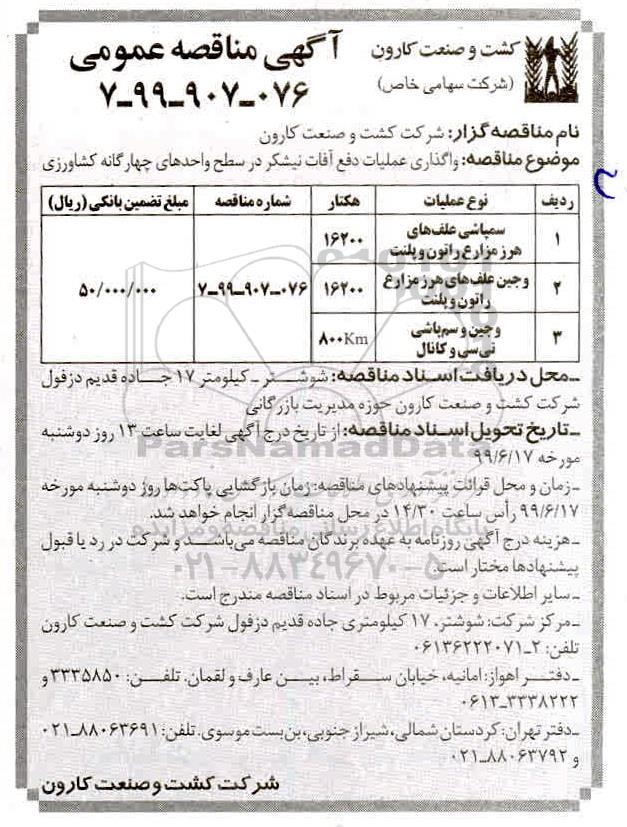 کشت و صنعت کارون
(شرکت سهامی خاص)
آگهی مناقصه عمومی
۷-۹۹-۹۰۷-۰۷۶
نام مناقصه گزار: شرکت کشت و صنعت کارون
موضوع مناقصه: واگذاری عملیات دفع آفات نیشکر در سطح واحدهای چهارگانه کشاورزی
ردیف نوع عملیات هکتار شماره مناقصه مبلغ تضمین بانکی (ریال)
۱ سمپاشی علف‌های هرز مزارع راتون و پلنت ۱۶۲۰۰
۲ وجین علف‌های هرز مزارع راتون و پلنت ۱۶۲۰۰ ۷-۹۹-۹۰۷-۰۷۶ ۵۰/۰۰۰/۰۰۰
۳ وجین و سم‌پاشی تی‌سی و کانال ۸۰۰Km
ـ محل دریافت اسناد مناقصه: شوشتر ـ کیلومتر ۱۷ جاده قدیم دزفول
شرکت کشت و صنعت کارون حوزه مدیریت بازرگانی
ـ تاریخ تحویل اسناد مناقصه: از تاریخ درج آگهی لغایت ساعت ۱۳ روز دوشنبه
مورخه ۹۹/۶/۱۷
ـ زمان و محل قرائت پیشنهادهای مناقصه: زمان بازگشایی پاکت‌ها روز دوشنبه مورخه
۹۹/۶/۱۷ رأس ساعت ۱۴/۳۰ در محل مناقصه‌گزار انجام خواهد شد.
ـ هزینه درج آگهی روزنامه به عهده برندگان مناقصه می‌باشد و شرکت در رد یا قبول
پیشنهادها مختار است.
ـ سایر اطلاعات و جزئیات مربوط در اسناد مناقصه مندرج است.
ـ مرکز شرکت: شوشتر، ۱۷ کیلومتری جاده قدیم دزفول شرکت کشت و صنعت کارون
تلفن: ۲-۰۶۱۳۶۲۲۲۰۷۱
ـ دفتر اهواز: امانیه، خیابان سقراط، بین عارف و لقمان. تلفن: ۳۳۳۵۸۵۰ و
۰۶۱۳-۳۳۳۸۲۲۲
ـ دفتر تهران: کردستان شمالی، شیراز جنوبی، بن‌بست موسوی. تلفن: ۸۸۰۶۳۶۹۱-۰۲۱
و ۸۸۰۶۳۷۹۲-۰۲۱
شرکت کشت و صنعت کارون
ParsNamadData
پایگاه اطلاع رسانی مناقصه و مزایده
۰۲۱-۸۸۳۴۹۶۷۰-۵